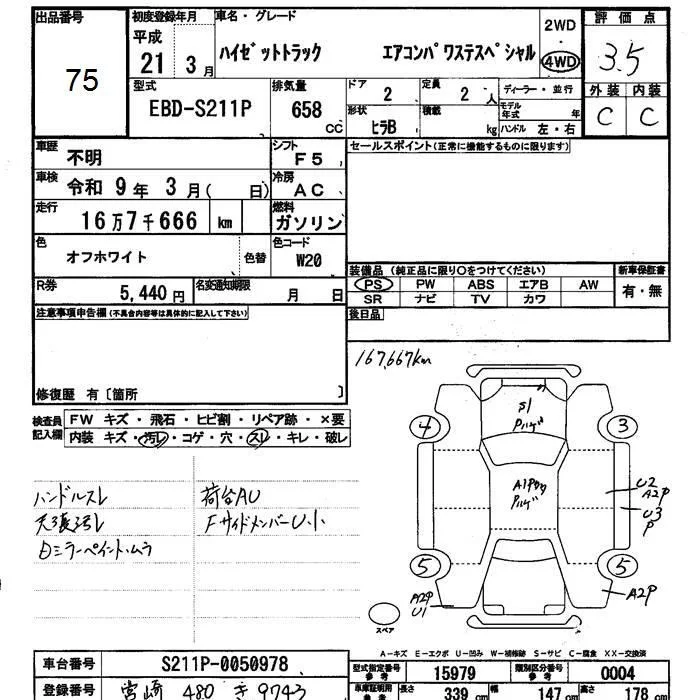 出品番号 初度登録年月 車名・グレード 2WD 評価点
75 平成 21 3月 ハイゼットトラック エアコンパワステスペシャル ・ 4WD 3.5
型式 排気量 ドア 定員 ディーラー・並行 外装 内装
EBD-S211P 658 CC 2 2人 モデル年式 年 C C
形状 積載 ハンドル 左・右
ヒラB kg
車歴 不明 シフト F5 セールスポイント(正常に機能するものに限ります)
車検 令和 9年 3月( 日) 冷房 AC
走行 16万7千666 km 燃料 ガソリン
色 オフホワイト 色替 色コード W20
装備品(純正品に限り○をつけてください) 新車保証書
R券 5,440円 名変通知期限 月 日 PS PW ABS エアB AW 有・無
SR ナビ TV カワ
注意事項申告欄(不具合内容等は具体的に記入して下さい) 後日品
167,667km
修復歴 有〔箇所 〕
検査員記入欄 FW キズ・飛石・ヒビ割・リペア跡・×要
内装 キズ・汚レ・コゲ・穴・スレ・キレ・破レ
S1
Pハゲ
4 3
ハンドルスレ 荷台AU
天張汚レ FサイドメンバーU小
Dミラーペイントムラ
A1P
Pハゲ
U2
A2P
U3
P
5 5
A2P
U1
A2P
スペア
A-キズ E-エクボ U-凹み W-補修跡 S-サビ C-腐食 XX-交換済
車台番号 S211P-0050978 型式指定番号 参考 15979 類別区分番号 参考 0004
登録番号 宮崎 480 き 9743 車庫証明用 参考 長さ 339 cm 幅 147 cm 高さ 178 cm